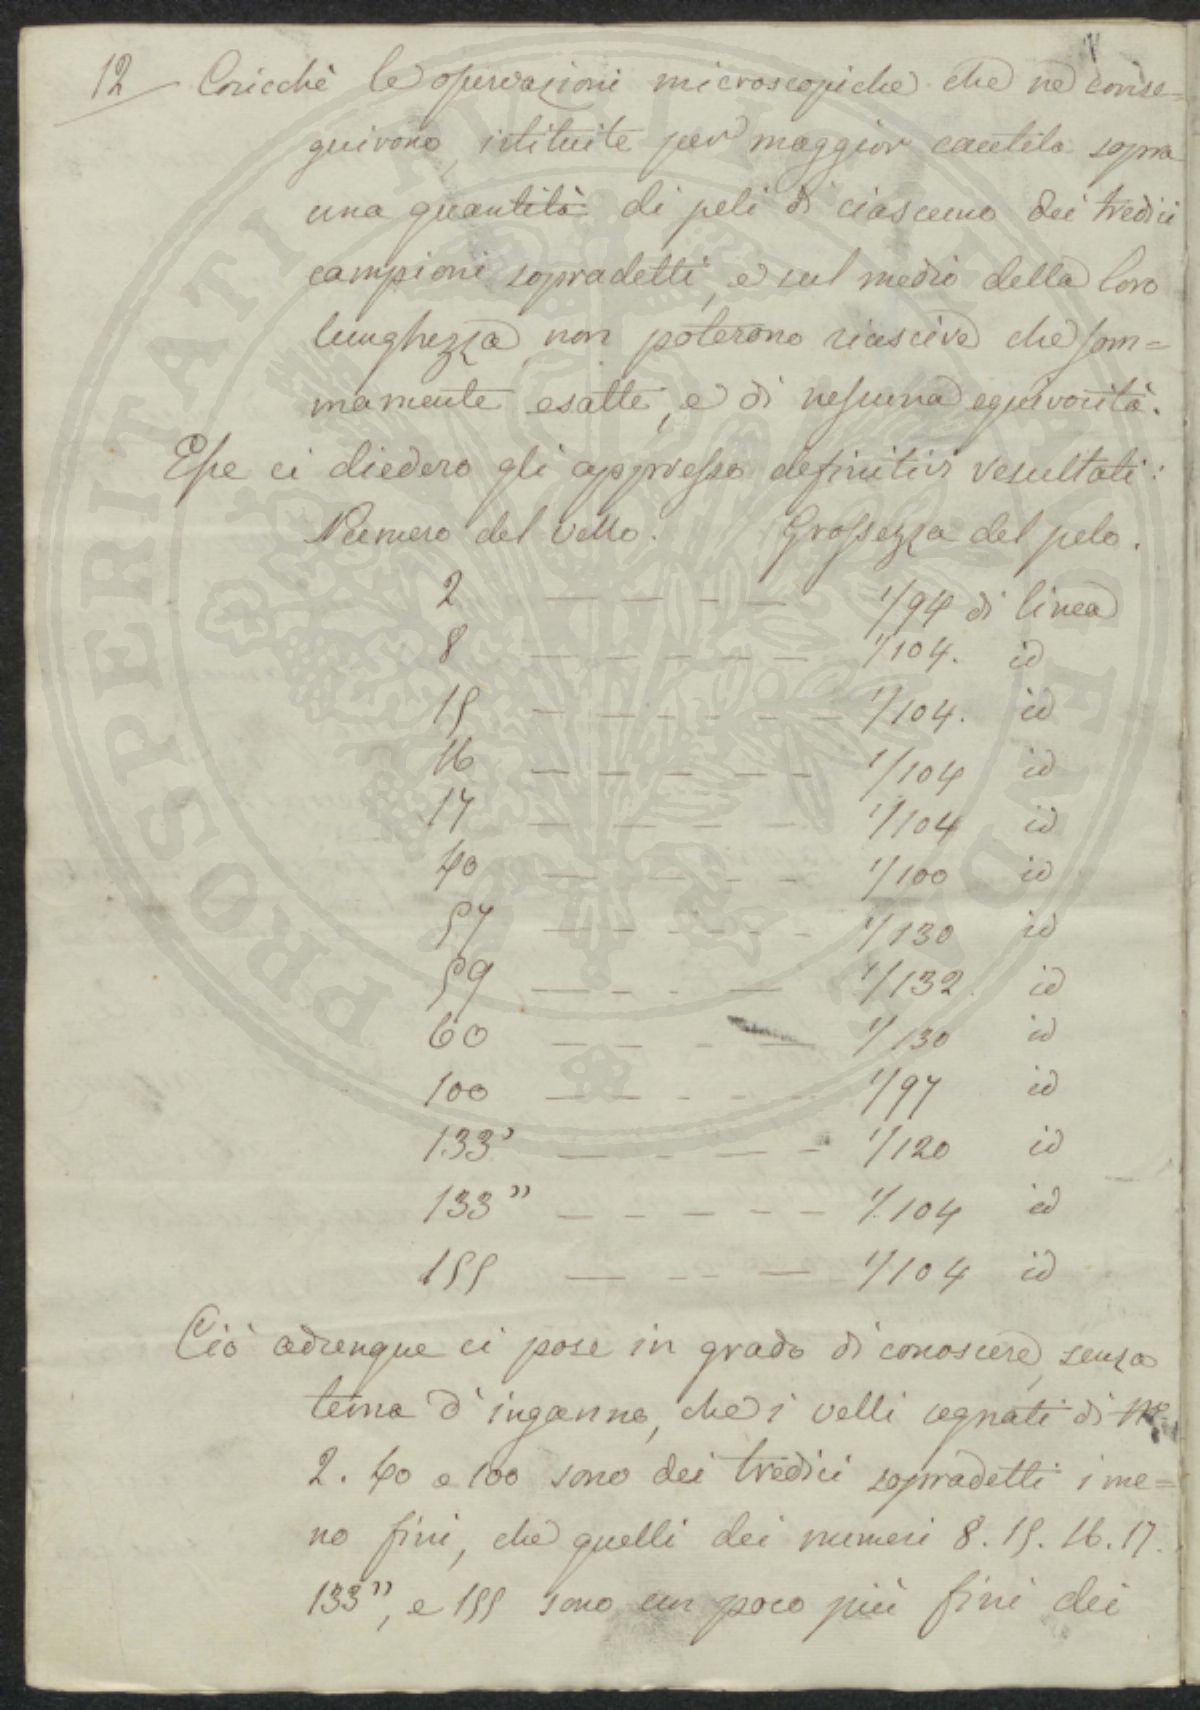 12 Cosicchè le osservazioni microscopiche che ne conse=
guirono, istituite per maggior cautela sopra
una quantità di peli di ciascuno dei tredici
campioni sopradetti, e sul medio della loro
lunghezza non poterono riuscire che som=
mamente esatte, e di nessuna equivocità.
Esse ci diedero gli appresso definitivi resultati:
Numero del vello. Grossezza del pelo.
2 — — - — 1/94 di linea
8 — — — — — 1/104. id
15 — — - - - - 1/104. id
16 — — — — - - 1/104 id
17 — — — — - 1/104 id
40 — — — - - 1/100 id
57 — — - - - - 1/130 id
59 — - - — 1/132. id
60 — — - — 1/130 id
100 — — - - - 1/97 id
133' — - — - 1/120 id
133" — - — - - - 1/104 id
155 — - - — 1/104 id
Ciò adunque ci pose in grado di conoscere, senza
tema d'inganno, che i velli segnati di N°
2. 40 e 100 sono dei tredici sopradetti i me=
no fini, che quelli dei numeri 8. 15. 16. 17.
133", e 155 sono un poco più fini dei
PROSPERITATI PUBLICAE AUGENDAE